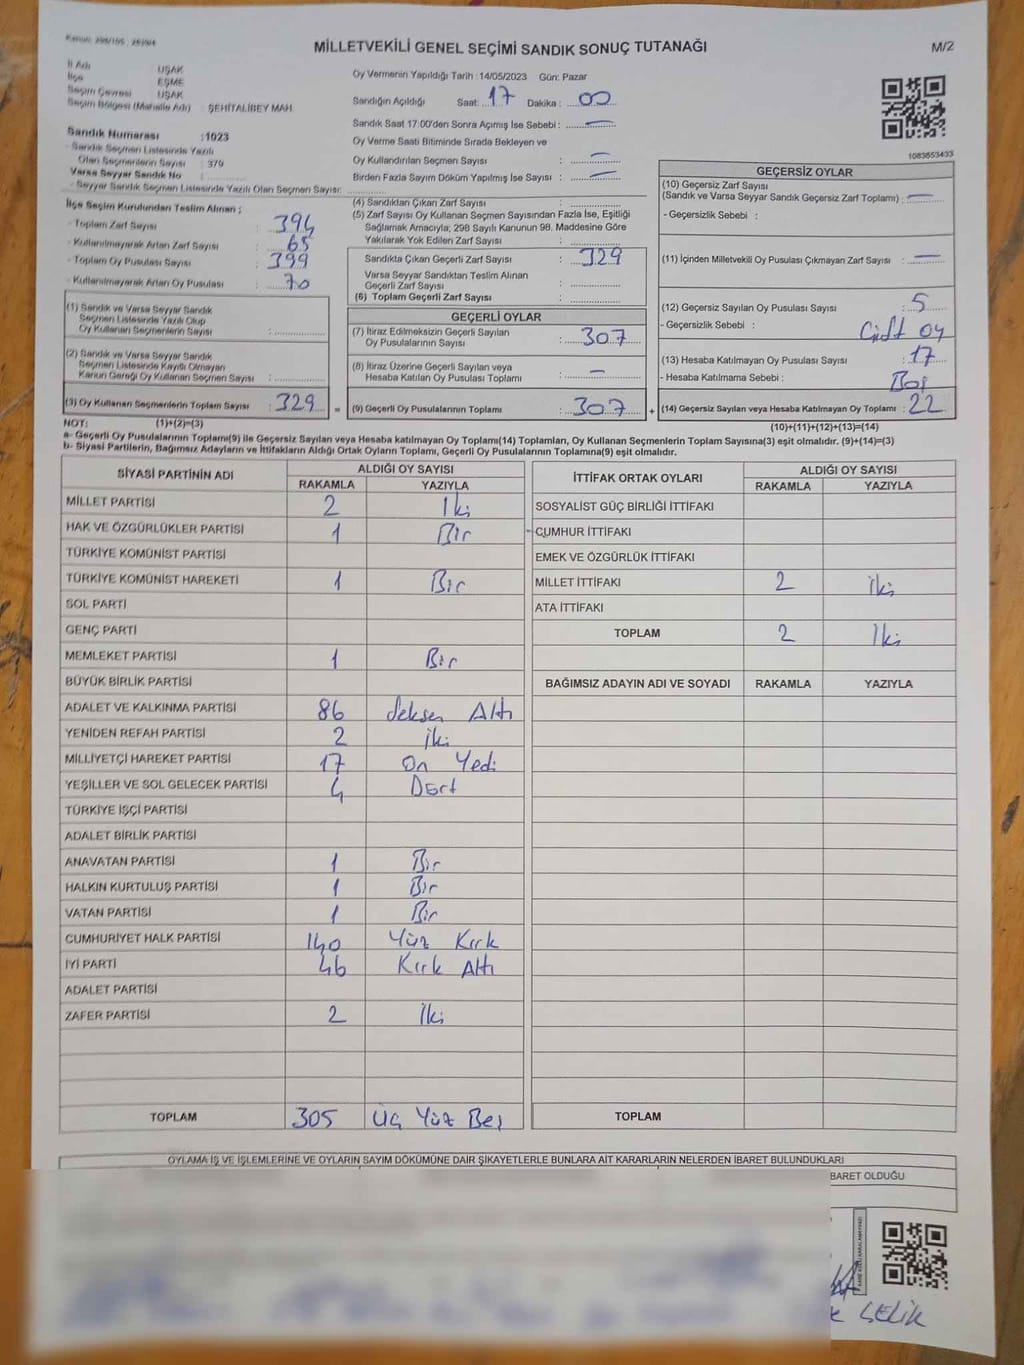 MİLLETVEKİLİ GENEL SEÇİMİ SANDIK SONUÇ TUTANAĞI
M/2
İl Adı UŞAK
İlçe EŞME
Seçim Çevresi UŞAK
Seçim Bölgesi (Mahalle Adı) ŞEHİTALİBEY MAH.
Sandık Numarası :1023
- Sandık Seçmen Listesinde Yazılı
Olan Seçmenlerin Sayısı : 379
Varsa Seyyar Sandık No :
- Seyyar Sandık Seçmen Listesinde Yazılı Olan Seçmen Sayısı:
İlçe Seçim Kurulundan Teslim Alınan ;
- Toplam Zarf Sayısı : 394
- Kullanılmayarak Artan Zarf Sayısı : 65
- Toplam Oy Pusulası Sayısı : 399
- Kullanılmayarak Artan Oy Pusulası : 70
(1) Sandık ve Varsa Seyyar Sandık
Seçmen Listesinde Yazılı Olup
Oy Kullanan Seçmenlerin Sayısı :
(2) Sandık ve Varsa Seyyar Sandık
Seçmen Listesinde Kayıtlı Olmayan
Kanun Gereği Oy Kullanan Seçmen Sayısı :
(3) Oy Kullanan Seçmenlerin Toplam Sayısı : 329 =
Oy Vermenin Yapıldığı Tarih :14/05/2023 Gün: Pazar
Sandığın Açıldığı Saat: 17 Dakika : 00
Sandık Saat 17:00'den Sonra Açımış İse Sebebi : —
Oy Verme Saati Bitiminde Sırada Bekleyen ve
Oy Kullandırılan Seçmen Sayısı : —
Birden Fazla Sayım Döküm Yapılmış İse Sayısı : —
(4) Sandıktan Çıkan Zarf Sayısı :
(5) Zarf Sayısı Oy Kullanan Seçmen Sayısından Fazla İse, Eşitliği
Sağlamak Amacıyla, 298 Sayılı Kanunun 98. Maddesine Göre
Yakılarak Yok Edilen Zarf Sayısı :
Sandıkta Çıkan Geçerli Zarf Sayısı : 329
Varsa Seyyar Sandıktan Teslim Alınan
Geçerli Zarf Sayısı :
(6) Toplam Geçerli Zarf Sayısı :
GEÇERLİ OYLAR
(7) İtiraz Edilmeksizin Geçerli Sayılan
Oy Pusulalarının Sayısı : 307
(8) İtiraz Üzerine Geçerli Sayılan veya
Hesaba Katılan Oy Pusulası Toplamı : —
(9) Geçerli Oy Pusulalarının Toplamı : 307 +
1083853433
GEÇERSİZ OYLAR
(10) Geçersiz Zarf Sayısı
(Sandık ve Varsa Seyyar Sandık Geçersiz Zarf Toplamı) : —
- Geçersizlik Sebebi :
(11) İçinden Milletvekili Oy Pusulası Çıkmayan Zarf Sayısı : —
(12) Geçersiz Sayılan Oy Pusulası Sayısı : 5
- Geçersizlik Sebebi : Çift oy
(13) Hesaba Katılmayan Oy Pusulası Sayısı : 17
- Hesaba Katılmama Sebebi : Boş
(14) Geçersiz Sayılan veya Hesaba Katılmayan Oy Toplamı : 22
NOT: (1)+(2)=(3) (10)+(11)+(12)+(13)=(14)
a- Geçerli Oy Pusulalarının Toplamı(9) ile Geçersiz Sayılan veya Hesaba katılmayan Oy Toplamı(14) Toplamları, Oy Kullanan Seçmenlerin Toplam Sayısına(3) eşit olmalıdır. (9)+(14)=(3)
b- Siyasi Partilerin, Bağımsız Adayların ve İttifakların Aldığı Ortak Oyların Toplamı, Geçerli Oy Pusulalarının Toplamına(9) eşit olmalıdır.
SİYASİ PARTİNİN ADI ALDIĞI OY SAYISI
RAKAMLA YAZIYLA
MİLLET PARTİSİ 2 İki
HAK VE ÖZGÜRLÜKLER PARTİSİ 1 Bir
TÜRKİYE KOMÜNİST PARTİSİ
TÜRKİYE KOMÜNİST HAREKETİ 1 Bir
SOL PARTİ
GENÇ PARTİ
MEMLEKET PARTİSİ 1 Bir
BÜYÜK BİRLİK PARTİSİ
ADALET VE KALKINMA PARTİSİ 86 Seksen Altı
YENİDEN REFAH PARTİSİ 2 İki
MİLLİYETÇİ HAREKET PARTİSİ 17 On Yedi
YEŞİLLER VE SOL GELECEK PARTİSİ 4 Dört
TÜRKİYE İŞÇİ PARTİSİ
ADALET BİRLİK PARTİSİ
ANAVATAN PARTİSİ 1 Bir
HALKIN KURTULUŞ PARTİSİ 1 Bir
VATAN PARTİSİ 1 Bir
CUMHURİYET HALK PARTİSİ 140 Yüz Kırk
İYİ PARTİ 46 Kırk Altı
ADALET PARTİSİ
ZAFER PARTİSİ 2 İki
TOPLAM 305 Üç Yüz Beş
İTTİFAK ORTAK OYLARI ALDIĞI OY SAYISI
RAKAMLA YAZIYLA
SOSYALİST GÜÇ BİRLİĞİ İTTİFAKI
CUMHUR İTTİFAKI
EMEK VE ÖZGÜRLÜK İTTİFAKI
MİLLET İTTİFAKI 2 İki
ATA İTTİFAKI
TOPLAM 2 İki
BAĞIMSIZ ADAYIN ADI VE SOYADI RAKAMLA YAZIYLA
TOPLAM
OYLAMA İŞ VE İŞLEMLERİNE VE OYLARIN SAYIM DÖKÜMÜNE DAİR ŞİKAYETLERLE BUNLARA AİT KARARLARIN NELERDEN İBARET BULUNDUKLARI
BARET OLDUĞU